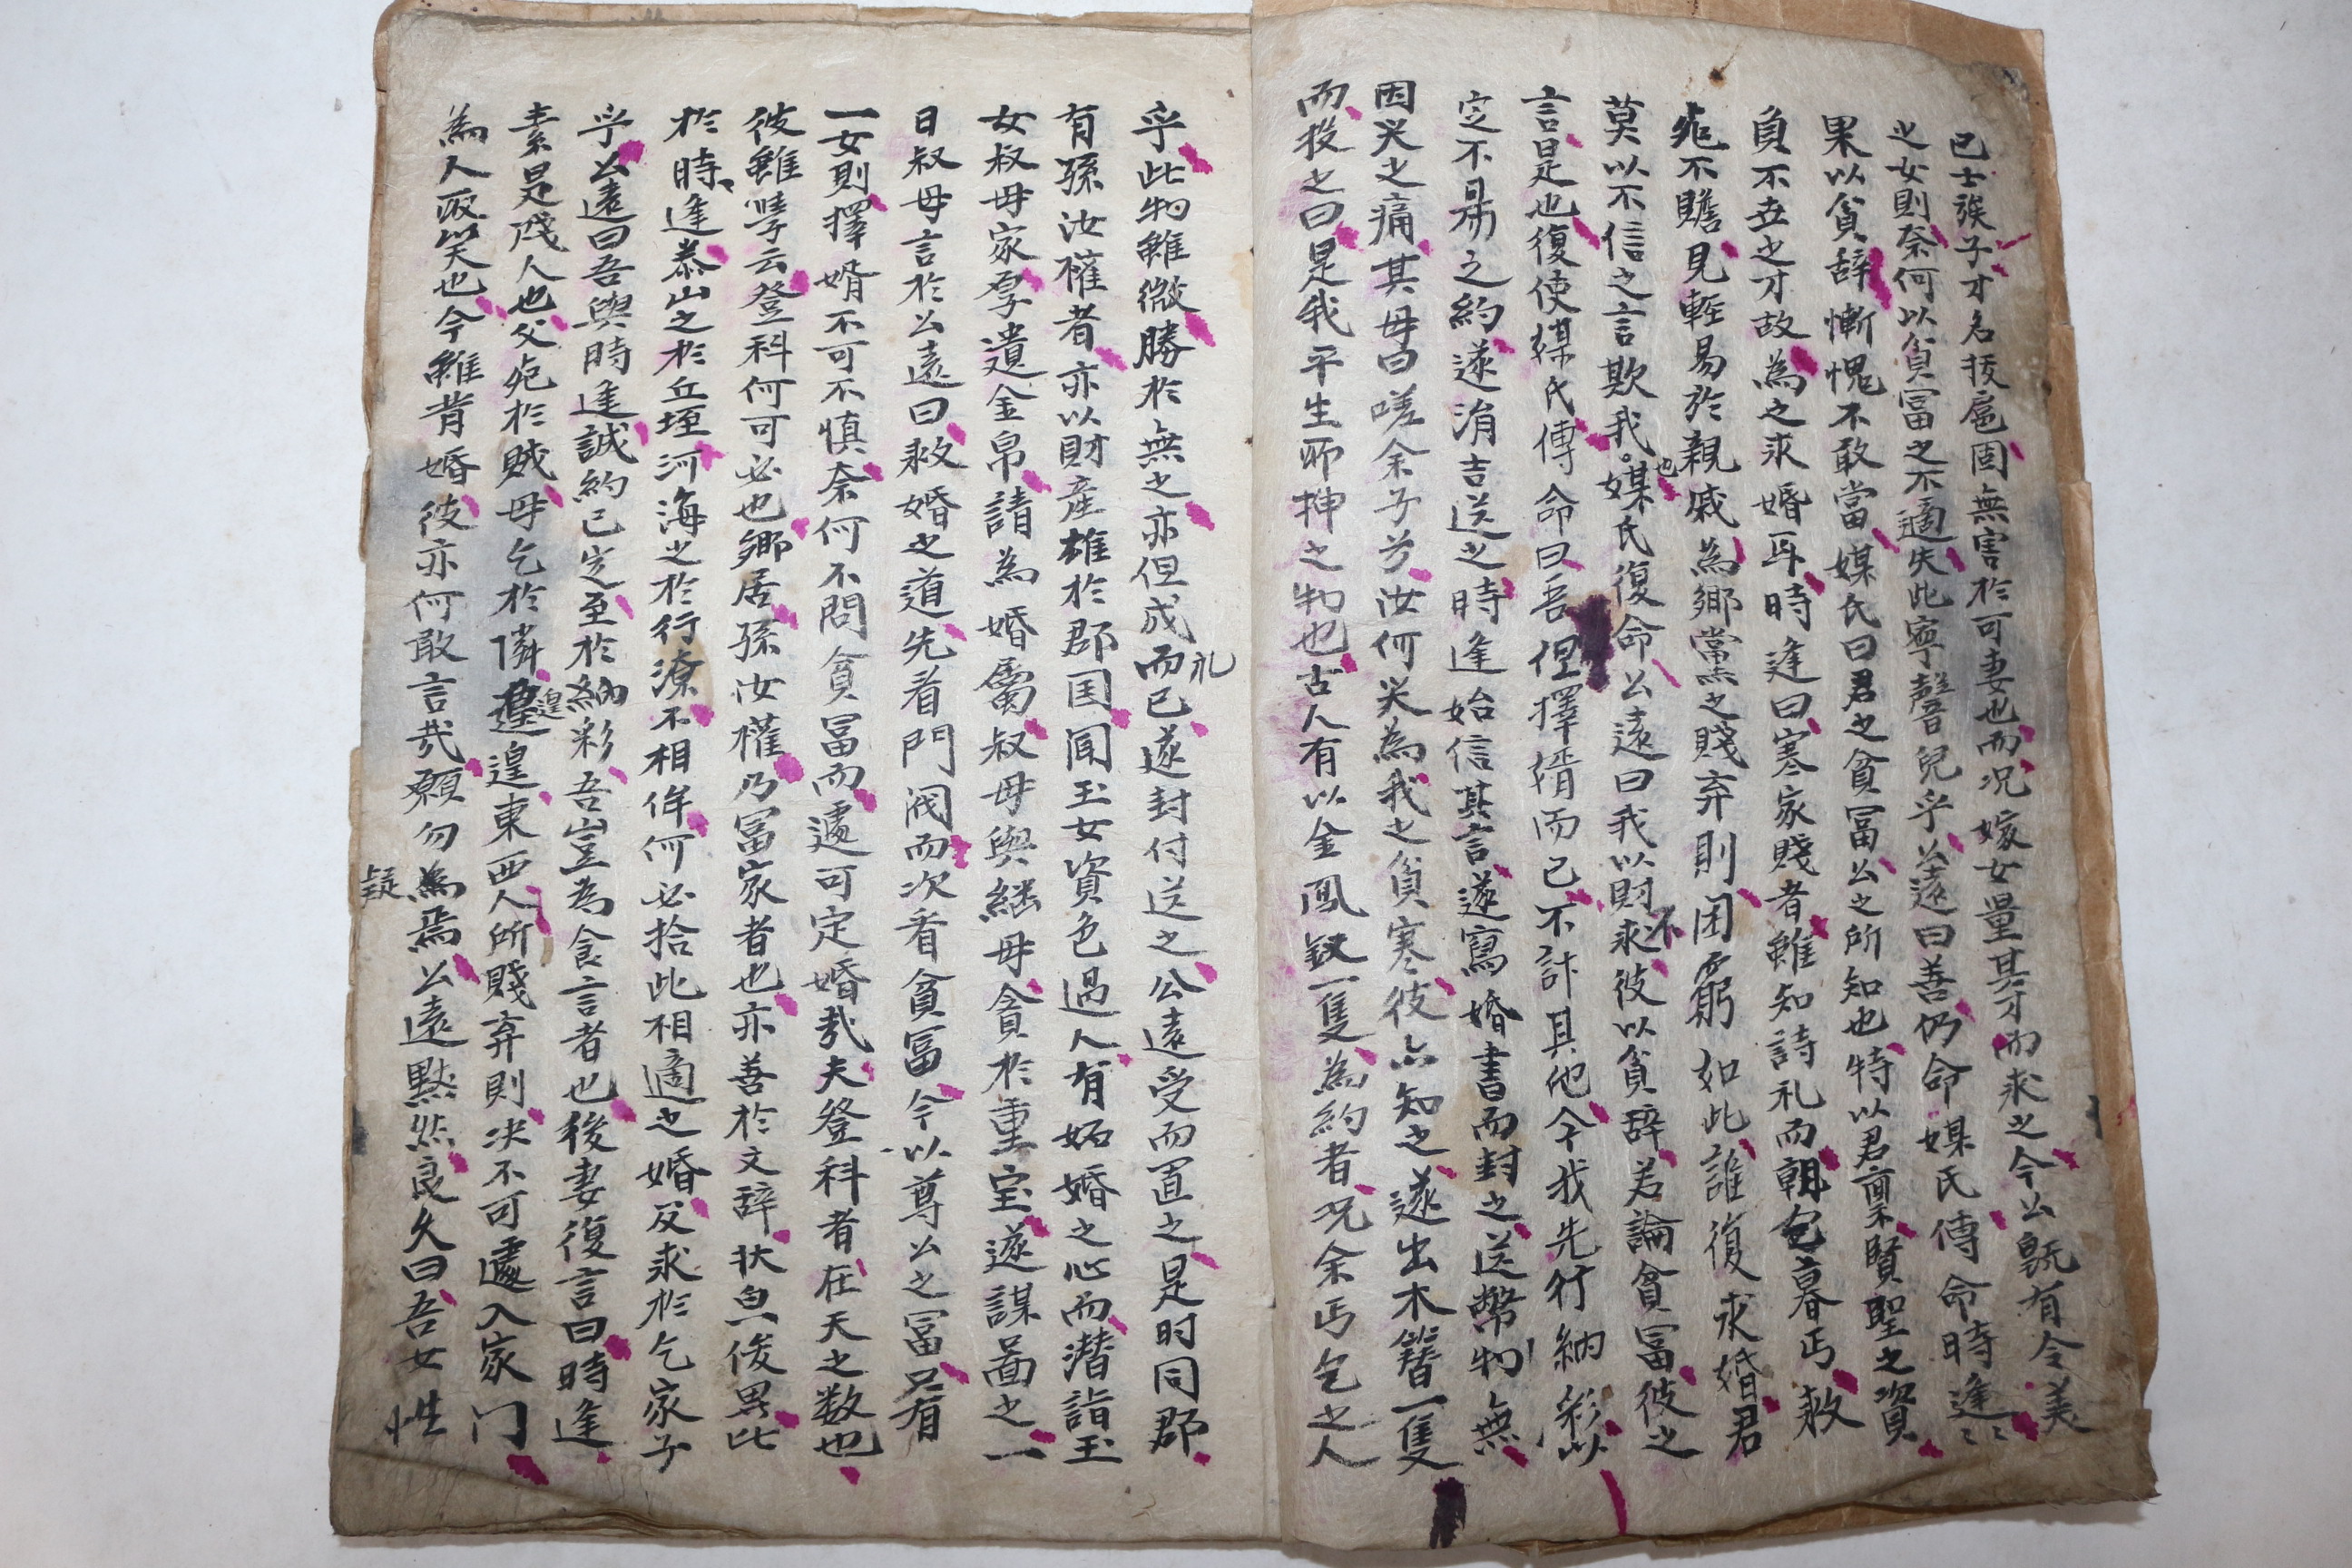 已士族子才名拔扈固無害於可妻也而况嫁女量其才而求之今公既有令美
之女則奈何以貧冨之不適失此寧馨兒乎公遠曰善仍命媒氏傳命時逢〻〻
果以貧辞慚愧不敢當媒氏曰君之貧冨公之所知也特以君禀賢聖之資
負不丗之才故為之求婚耳時逢曰寒家賤者雖知詩礼而朝乞暮丐救
死不贍見輕易於親戚為鄉黨之賤弃則困窮如此誰復求婚君
莫以不信之言欺我也媒氏復命公遠曰我以財不求彼以貧辞若論貧冨彼之
言是也復使媒氏傳命曰吾但擇婿而已不計其他今我先行納彩以
定不易之約遂涓吉送之時逢始信其言遂寫婚書而封之送幣物無
因哭之痛其母曰嗟余子兮汝何哭為我之貧寒彼亦知之遂出木簪一隻
而投之曰是我平生所揷之物也古人有以金鳳釵一隻為約者况余丐乞之人
乎此物雖微勝於無之亦但成礼而已遂封付送之公遠受而置之是时同郡
有孫汝權者亦以財產雄於郡国聞玉女資色過人有妬婚之心而潛詣玉
女叔母家厚遺金帛請為婚屬叔母與継母貪於重宝遂謀啚之一
日叔母言於公遠曰救婚之道先看門閥而次看貧冨今以尊公之冨只有
一女則擇婿不可不慎奈何不問貧冨而遽可定婚哉夫登科者在天之数也
彼雖學云登科何可必也鄉居孫汝權乃冨家者也亦善於文辞状皃俊異比
於時逢泰山之於丘垤河海之於行潦不相侔何必捨此相適之婚反求於乞家子
乎公遠曰吾與時逢誠約已定至於納彩吾豈為食言者也後妻復言曰時逢
素是賤人也父死於賊母乞於隣遑遑東西人所賤弃則决不可遽入家门
為人取笑也今雖背婚彼亦何敢言哉願勿為疑焉公遠黙然良久曰吾女性